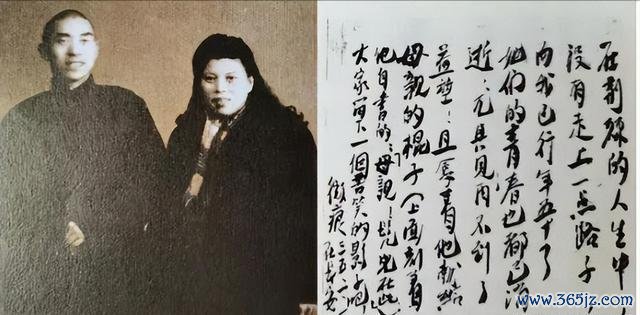 在荆棘的人生中
没有走上一点路子
内我已行年五十了
她们的青春也都已消
逝尤其见内不到了
且带着他
母亲的棍子(上面刻着
他自书的母亲!儿在此
大家留下一个苦笑的影子吧
微痕 三五 一
在长安
www.365jz.com